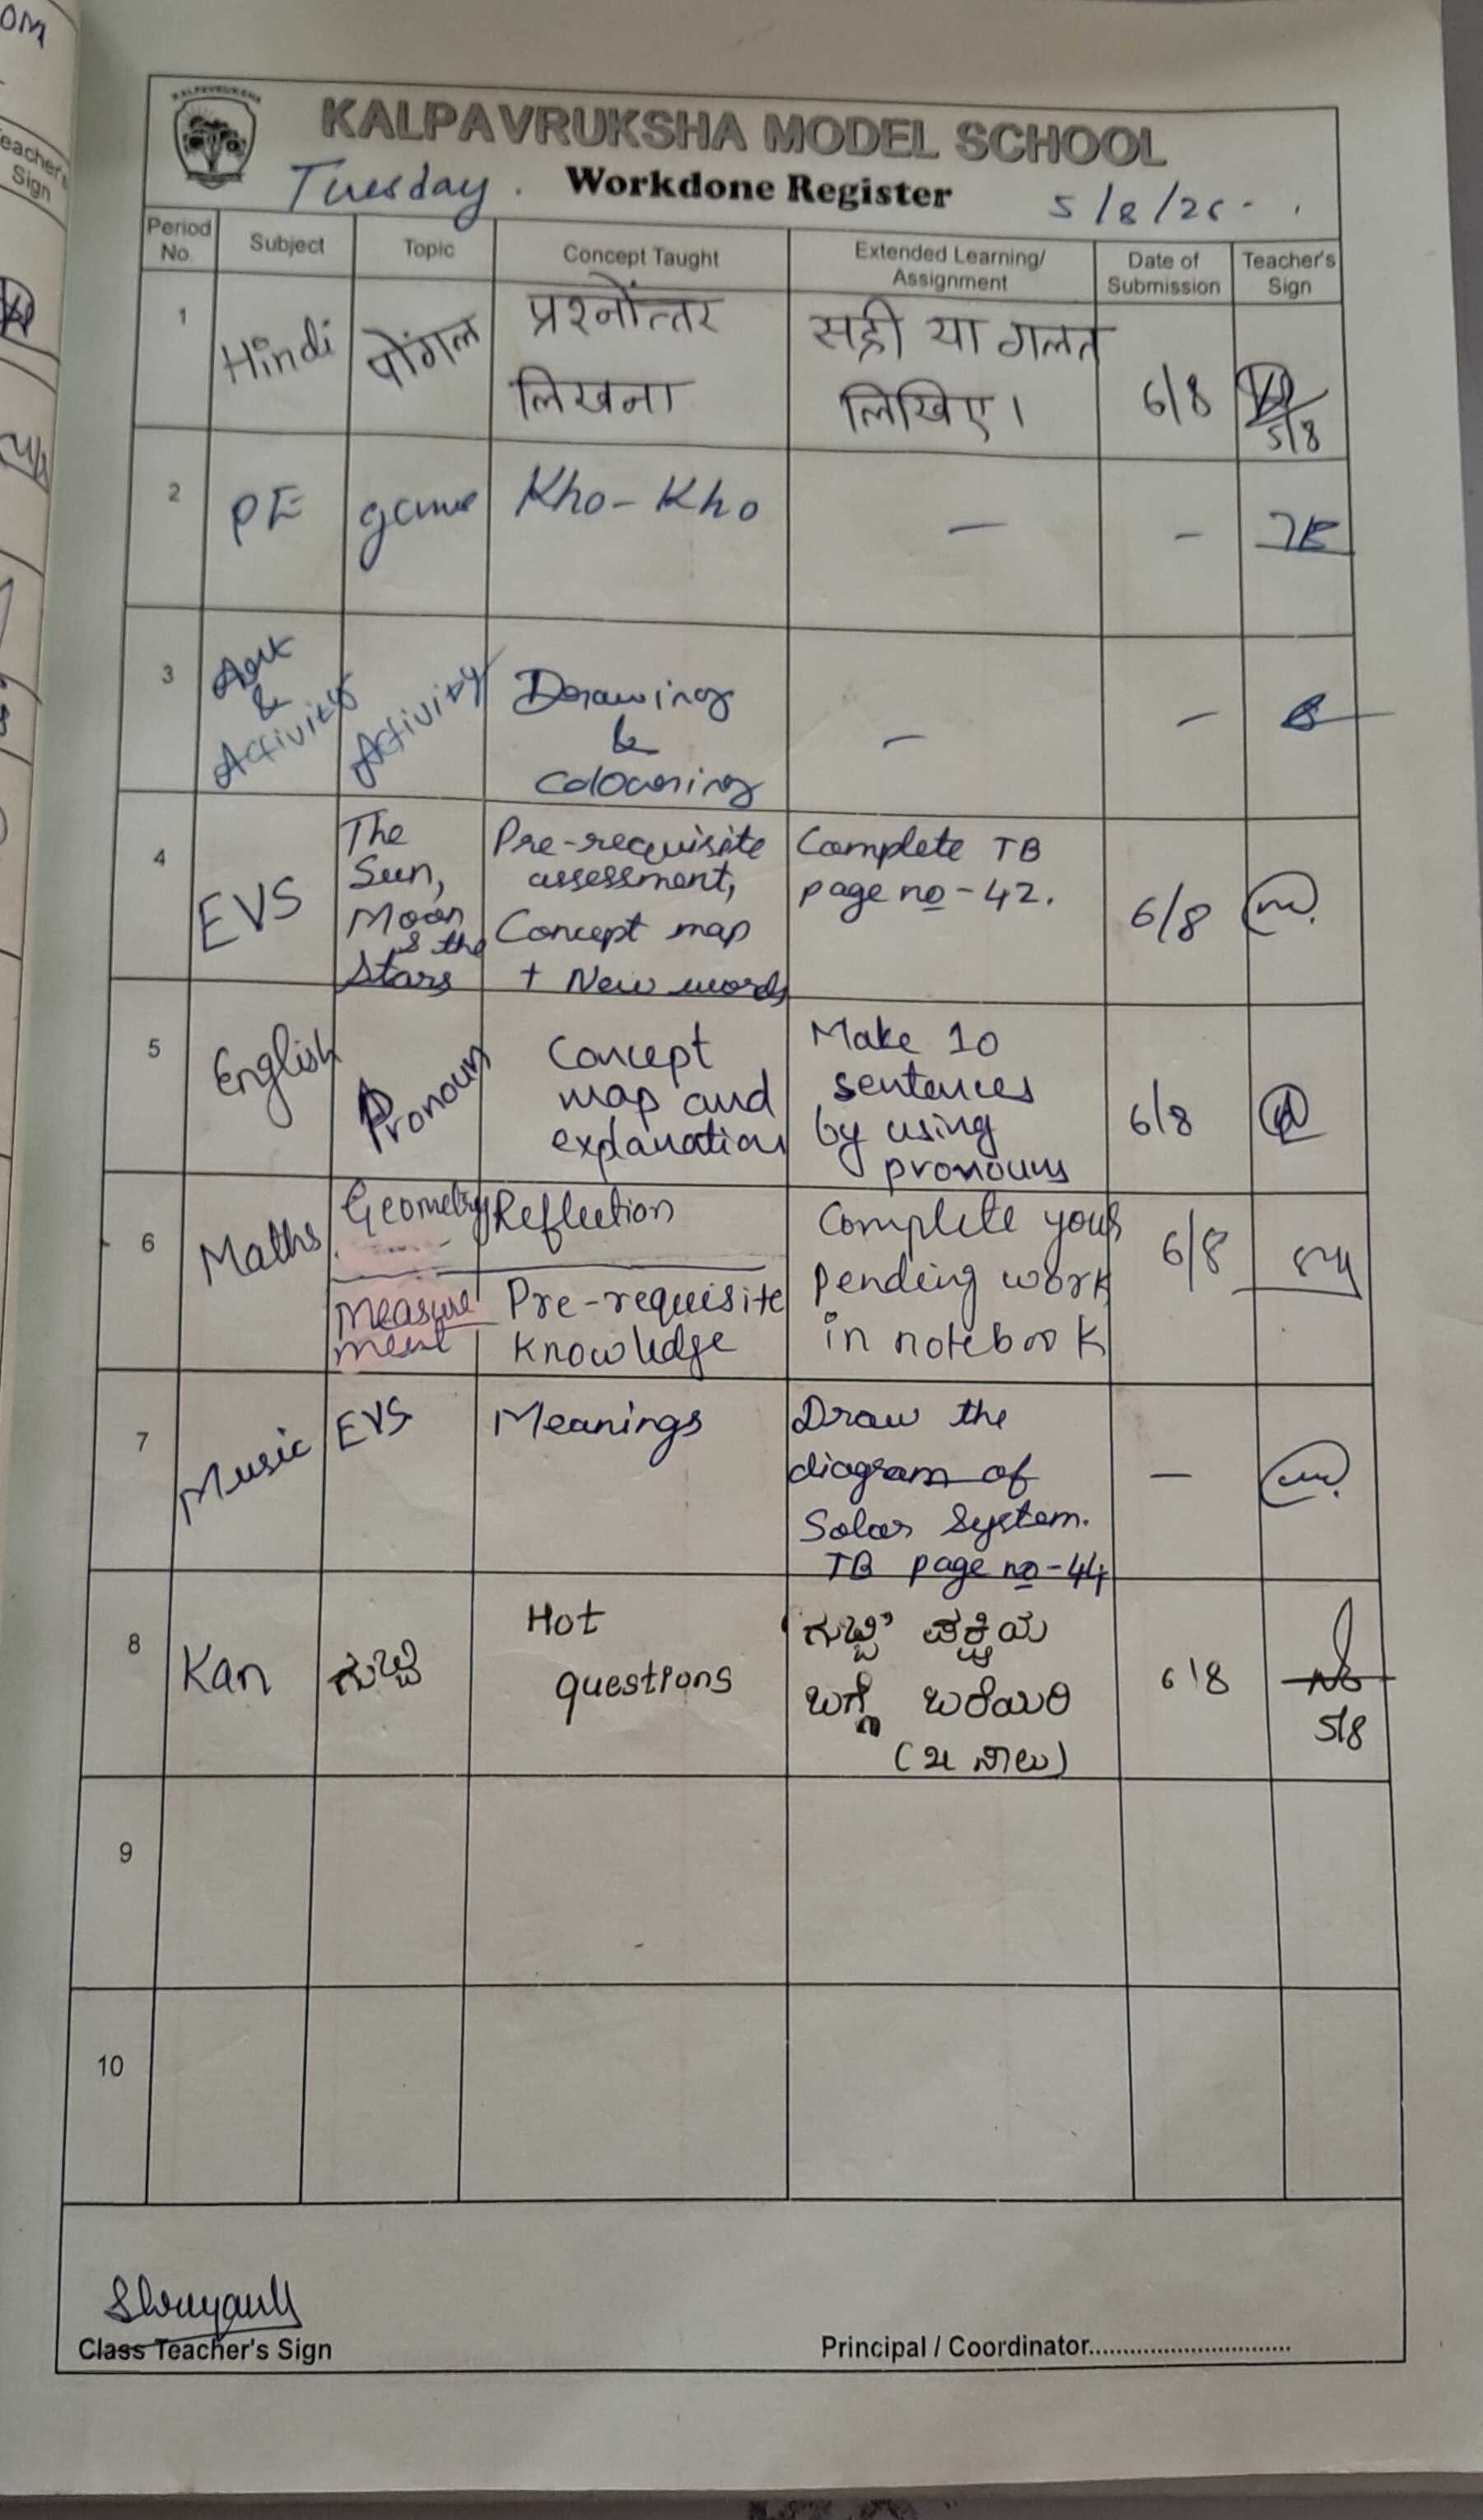 KALPAVRUKSHA
KALPAVRUKSHA MODEL SCHOOL
Tuesday. Workdone Register 5/8/25
Period No. Subject Topic Concept Taught Extended Learning/ Assignment Date of Submission Teacher's Sign
1 Hindi पोंगल प्रश्नोंत्तर लिखना सही या गलत लिखिए। 6/8 5/8
2 PE game Kho-Kho — -
3 Art & Activity Activity Drawing & Colouring — —
4 EVS The Sun, Moon & the Stars Pre-requisite assessment, Concept map + New words Complete TB page no-42. 6/8
5 English Pronoun Concept map and explanation Make 10 sentences by using pronouns 6/8
6 Maths Geometry Reflection Complete your pending work in notebook 6/8
Measurement Pre-requisite knowledge
7 Music EVS Meanings Draw the diagram of Solar System. TB page no-44 —
8 Kan ಗುಬ್ಬಿ Hot questions 'ಗುಬ್ಬಿ' ಪಕ್ಷಿಯ ಬಗ್ಗೆ ಬರೆಯಿರಿ 6/8 5/8
9
10
Class Teacher's Sign Principal / Coordinator..............................
Teacher's
Sign